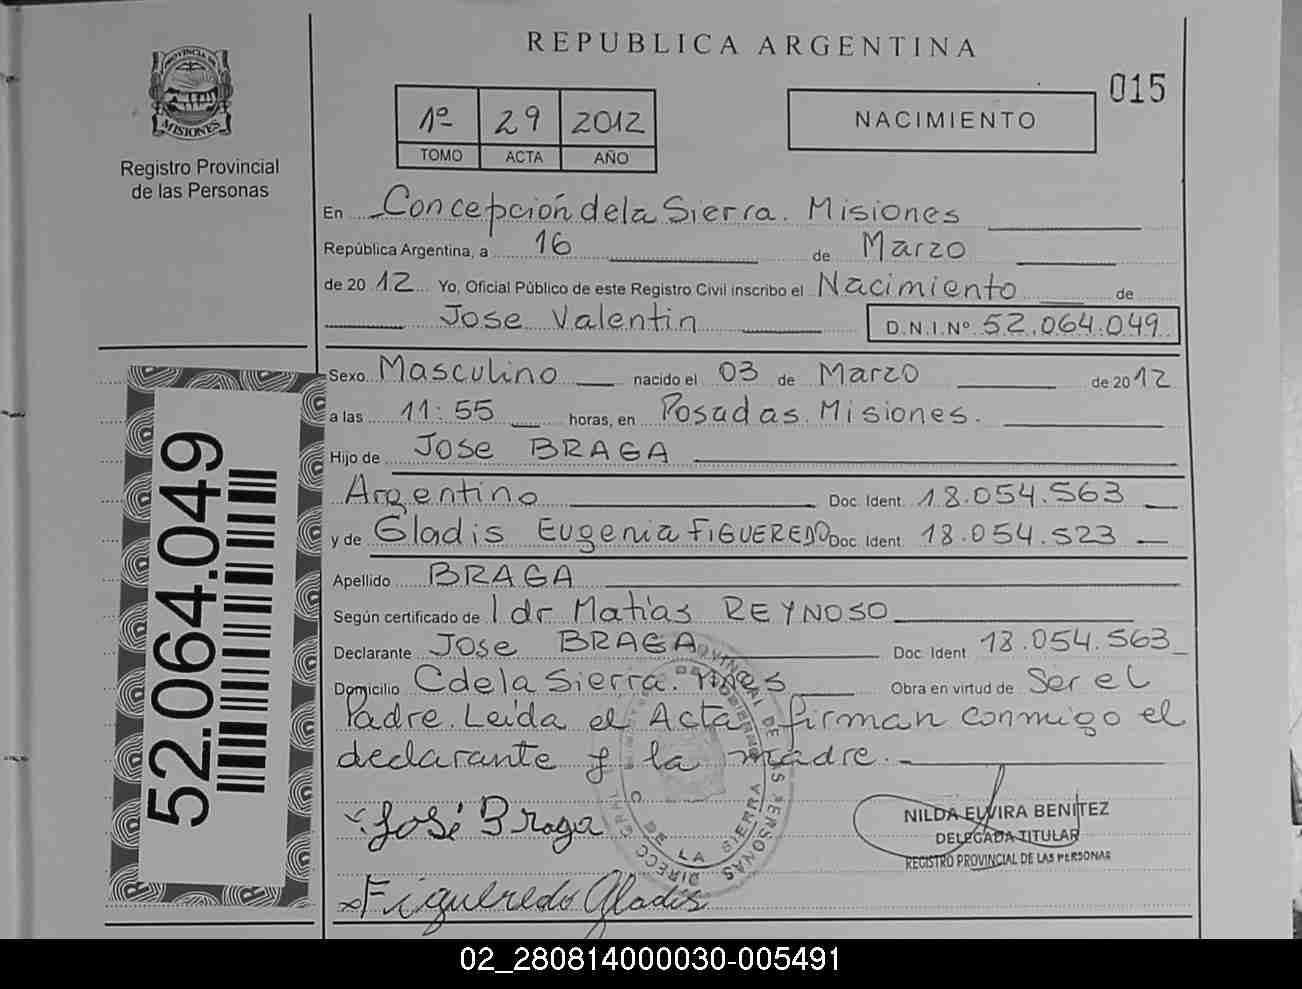 REPUBLICA ARGENTINA
015
PROVINCIA DE
MISIONES
Registro Provincial
de las Personas
1º 29 2012
TOMO ACTA AÑO
NACIMIENTO
En Concepción de la Sierra. Misiones
República Argentina, a 16 de Marzo
de 2012 Yo, Oficial Público de este Registro Civil inscribo el Nacimiento de
Jose Valentin D.N.I.Nº 52.064.049
Sexo Masculino nacido el 03 de Marzo de 2012
a las 11:55 horas, en Posadas. Misiones.
Hijo de Jose BRAGA
Argentino Doc. Ident. 18.054.563
y de Gladis Eugenia FIGUEREDO Doc. Ident. 18.054.523
Apellido BRAGA
Según certificado de l dr Matías REYNOSO
Declarante Jose BRAGA Doc. Ident 18.054.563
Domicilio C de la Sierra. Mnes Obra en virtud de Ser el
Padre. Leida el Acta firman conmigo el
declarante y la madre.
José Braga
Figueredo Gladis
NILDA ELVIRA BENITEZ
DELEGADA TITULAR
REGISTRO PROVINCIAL DE LAS PERSONAS
DIRECC. GRAL. PROVINCIAL DE LAS PERSONAS
C. DE LA SIERRA
52.064.049
02_280814000030-005491